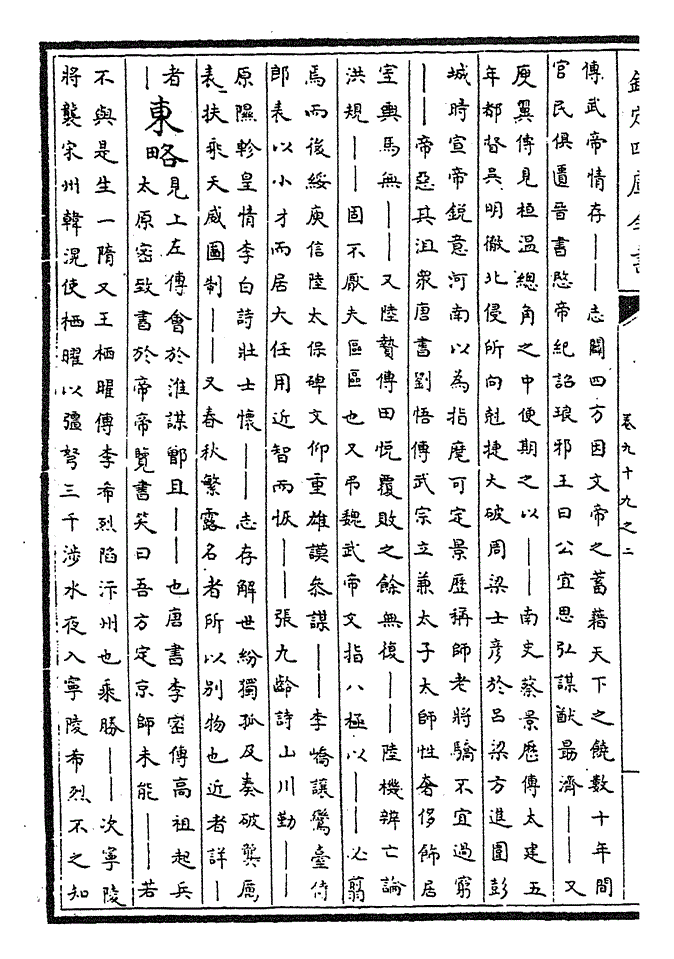 欽定四庫全書
卷九十九之二
傳武帝情存——志闢四方因文帝之蓄藉天下之饒數十年間
官民俱匱晉書愍帝紀詔琅邪王曰公宜思弘謀猷勗濟——又
庾翼傳見桓温總角之中便期之以——南史蔡景歷傳太建五
年都督吳明徹北侵所向剋捷大破周梁士彥於呂梁方進圍彭
城時宣帝銳意河南以為指麾可定景歷稱師老將驕不宜過窮
——帝惡其沮衆唐書劉悟傳武宗立兼太子太師性奢侈飾居
室輿馬無——又陸贄傳田悅覆敗之餘無復——陸機辨亡論
洪規——固不厭夫區區也又弔魏武帝文指八極以——必翦
焉而後綏庾信陸太保碑文仰重雄謨參謀——李嶠讓鸞臺侍
郎表以小才而居大任用近智而恢——張九齡詩山川勤——
原隰軫皇情李白詩壯士懷——志存解世紛獨孤及奏破龔厲
表扶乖天威圖制——又春秋繁露名者所以别物也近者詳—
者
—
東略
見上左傳會於淮謀鄫且——也唐書李密傳高祖起兵
太原密致書於帝帝覽書笑曰吾方定京師未能——若
不與是生一隋又王栖曜傳李希烈陷汴州也乘勝——次寧陵
將襲宋州韓滉使栖曜以彊弩三千涉水夜入寧陵希烈不之知